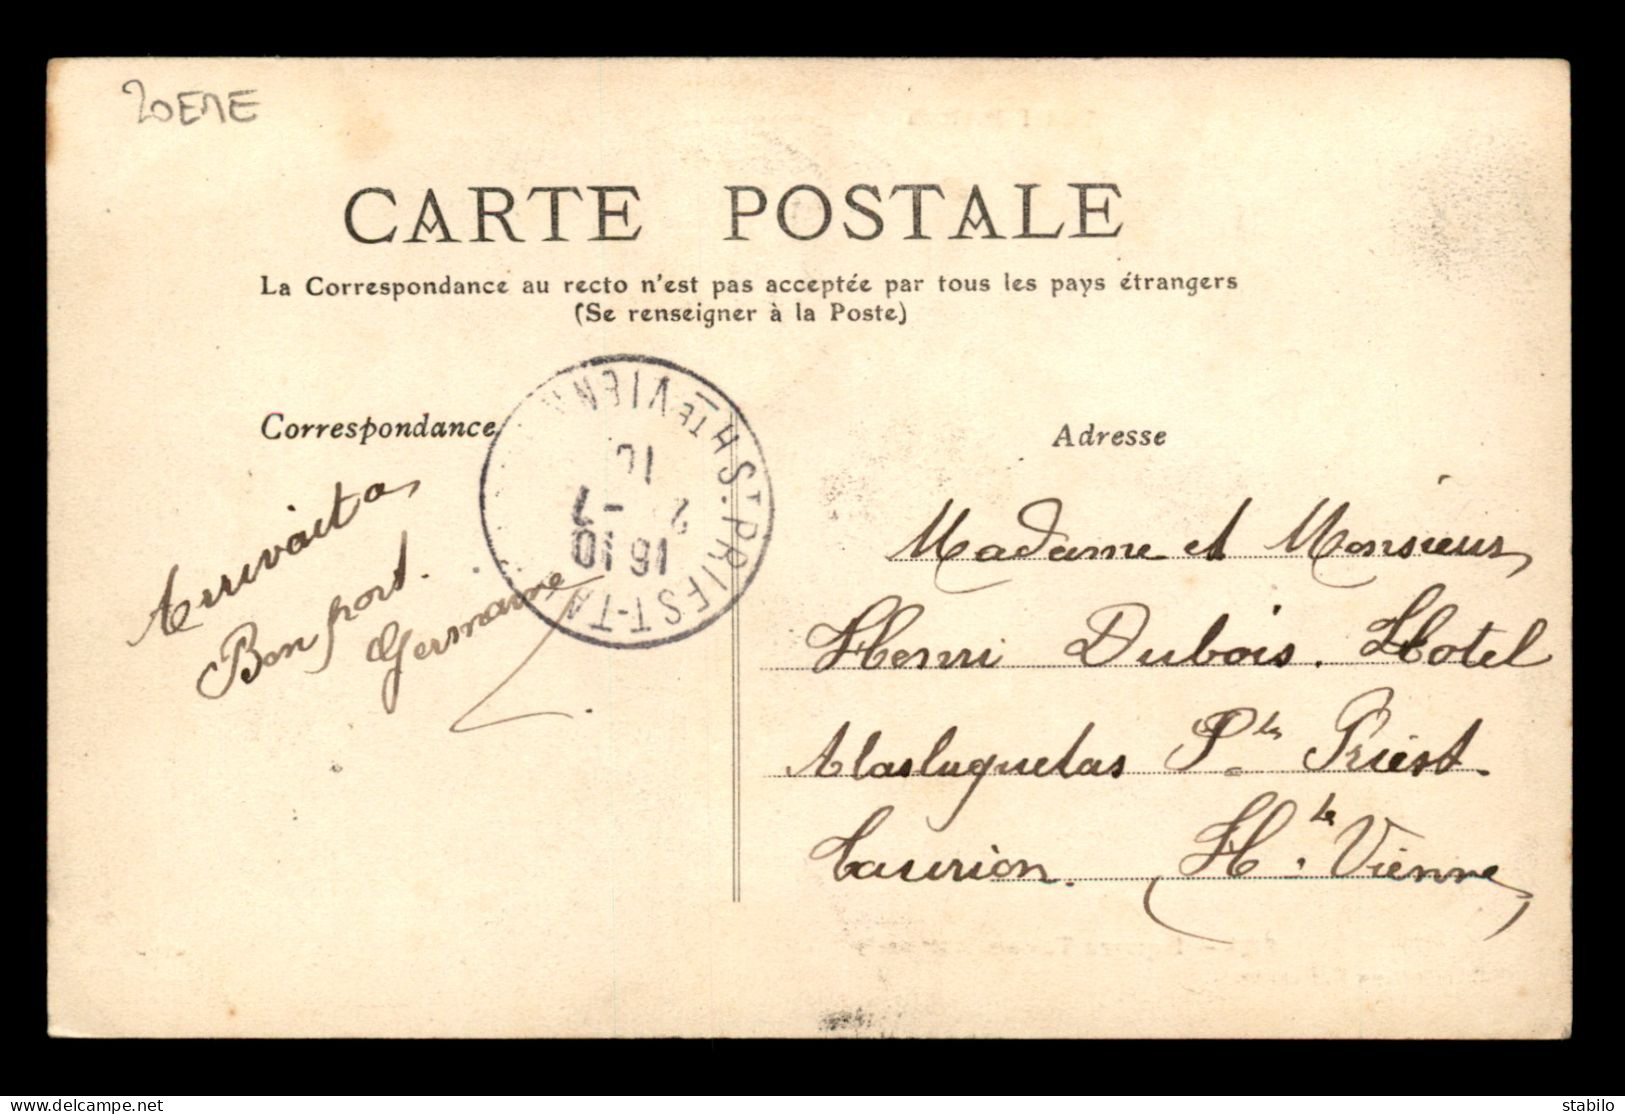 20EME
CARTE POSTALE
La Correspondance au recto n'est pas acceptée par tous les pays étrangers
(Se renseigner à la Poste)
Correspondance
Adresse
Bon port.
Germaine
Madame et Monsieur
Henri Dubois. Hotel
Maslaguetas Priest.
Taurion. Hte Vienne
ST. PRIEST-TA HTE VIENN
16
2 -7
16 10
stabilo